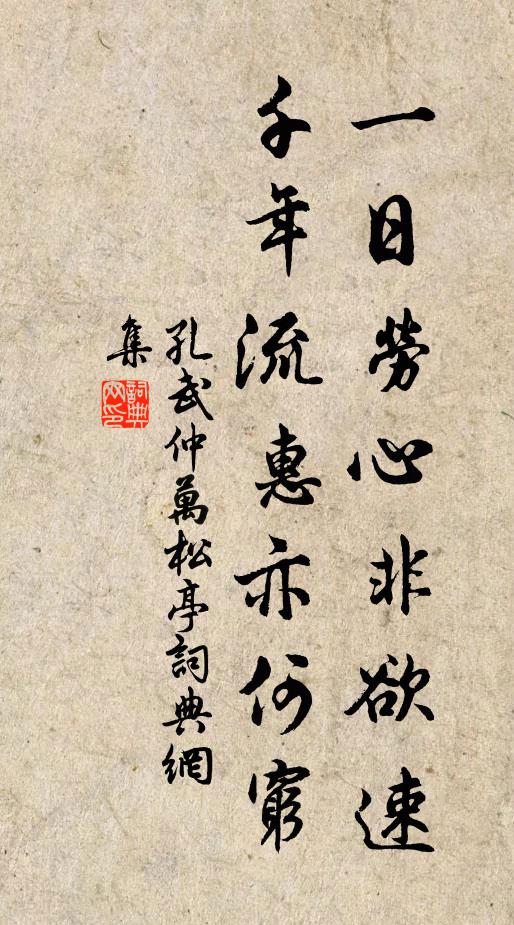 一日勞心非欲速
千年流惠亦何窮
孔武仲萬松亭詞典網
集
詞典网印